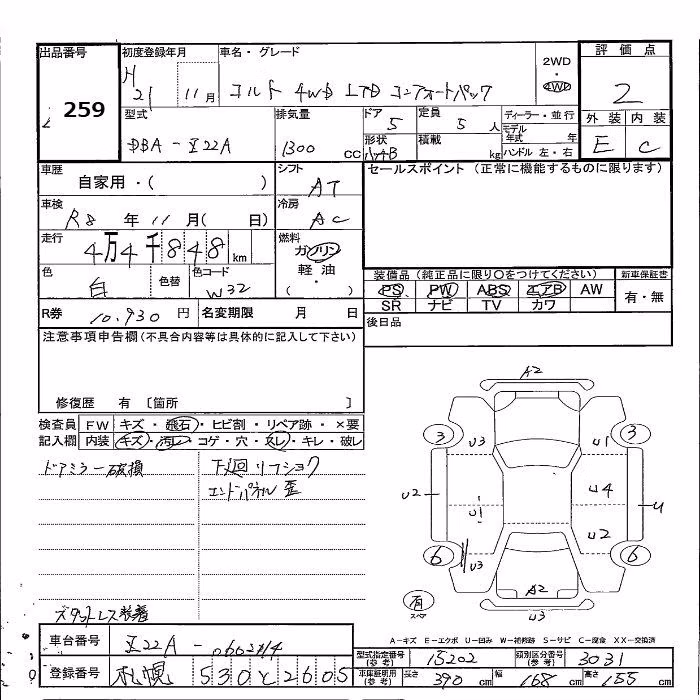 出品番号 初度登録年月 車名・グレード 評価点
259
H 21 11月 コルト 4WD LTD コンフォートパック 2WD ・ 4WD 2
型式 排気量 ドア 定員 ディーラー・並行 外装 内装
DBA - Z22A 1300 CC 5 5人 モデル年式 年 E C
形状 積載 kg ハンドル 左・右
ハッチB
車歴 シフト セールスポイント (正常に機能するものに限ります)
自家用・( ) AT
車検 冷房
R8年 11月( 日) AC
走行 燃料
4万4千848km ガソリン
色 色替 色コード 軽油 装備品 (純正品に限り○をつけてください) 新車保証書
白 W32 ・( ) PS PW ABS エアB AW 有・無
SR ナビ TV カワ
R券 10,930円 名変期限 月 日 後日品
注意事項申告欄 (不具合内容等は具体的に記入して下さい)
修復歴 有 〔箇所 〕
検査員 FW キズ・飛石・ヒビ割・リペア跡・×要
記入欄 内装 キズ・汚レ・コゲ・穴・スレ・キレ・破レ
ドアミラー破損 下廻リフショク
エンドパネル歪
スタットレス装着
A2
3 U3 U1 3
U2 U1 U4 U
U2
6 U3 6
A2
有 スペア U3
A-キズ E-エクボ U-凹み W-補修跡 S-サビ C-腐食 XX-交換済
車台番号 Z22A - 型式指定番号(参考) 15202 類別区分番号(参考) 3031
登録番号 札幌 530 と 2605 車庫証明用(参考) 長さ 390 cm 幅 168 cm 高さ 155 cm